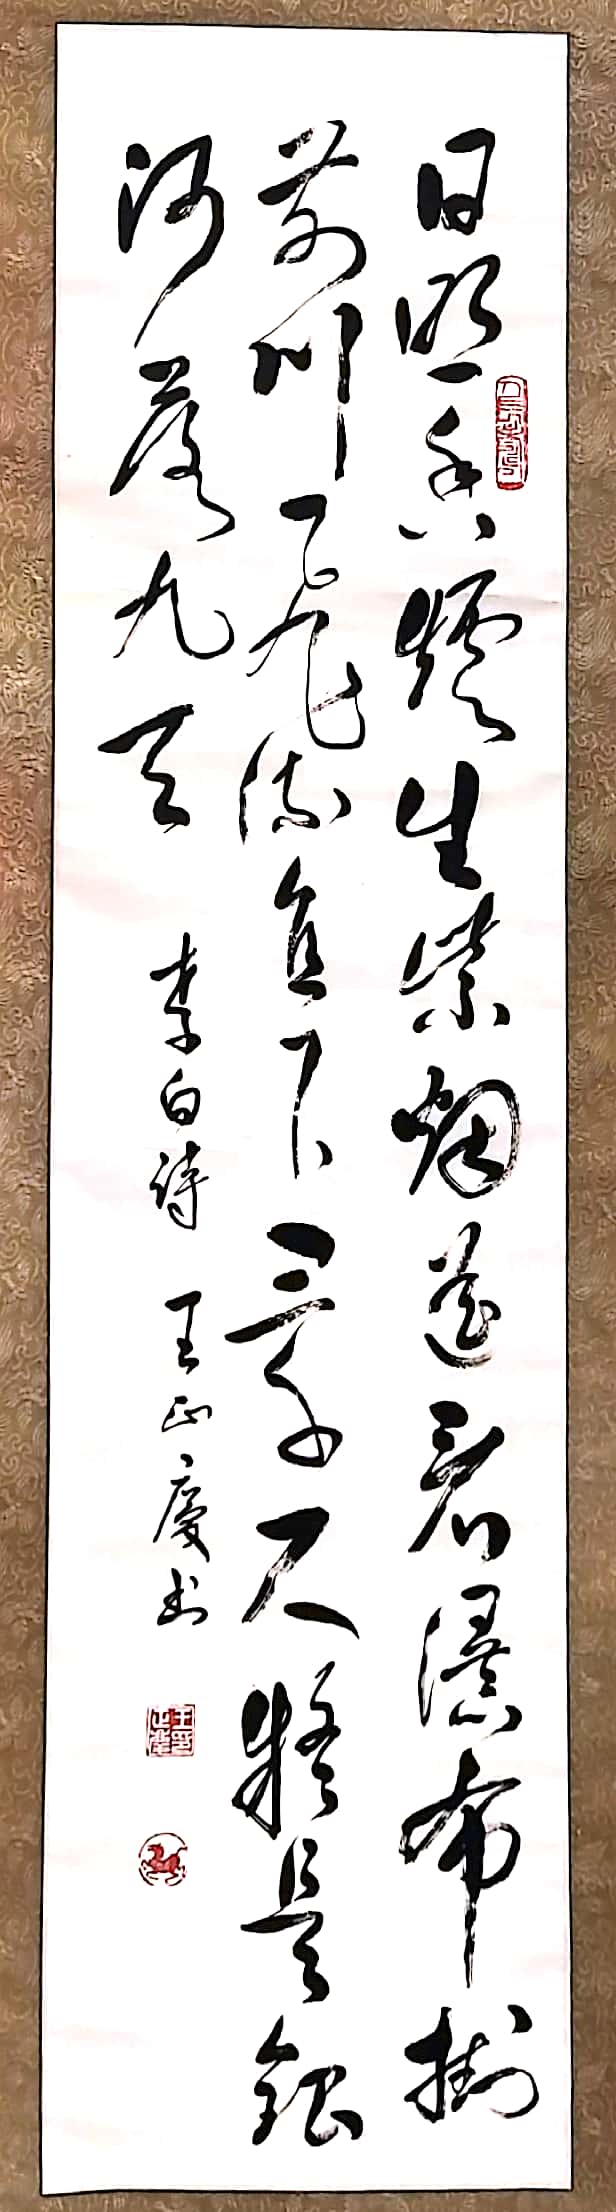 日照香爐生紫烟遥看瀑布掛
前川飛流直下三千尺疑是銀
河落九天
李白诗 王正慶书